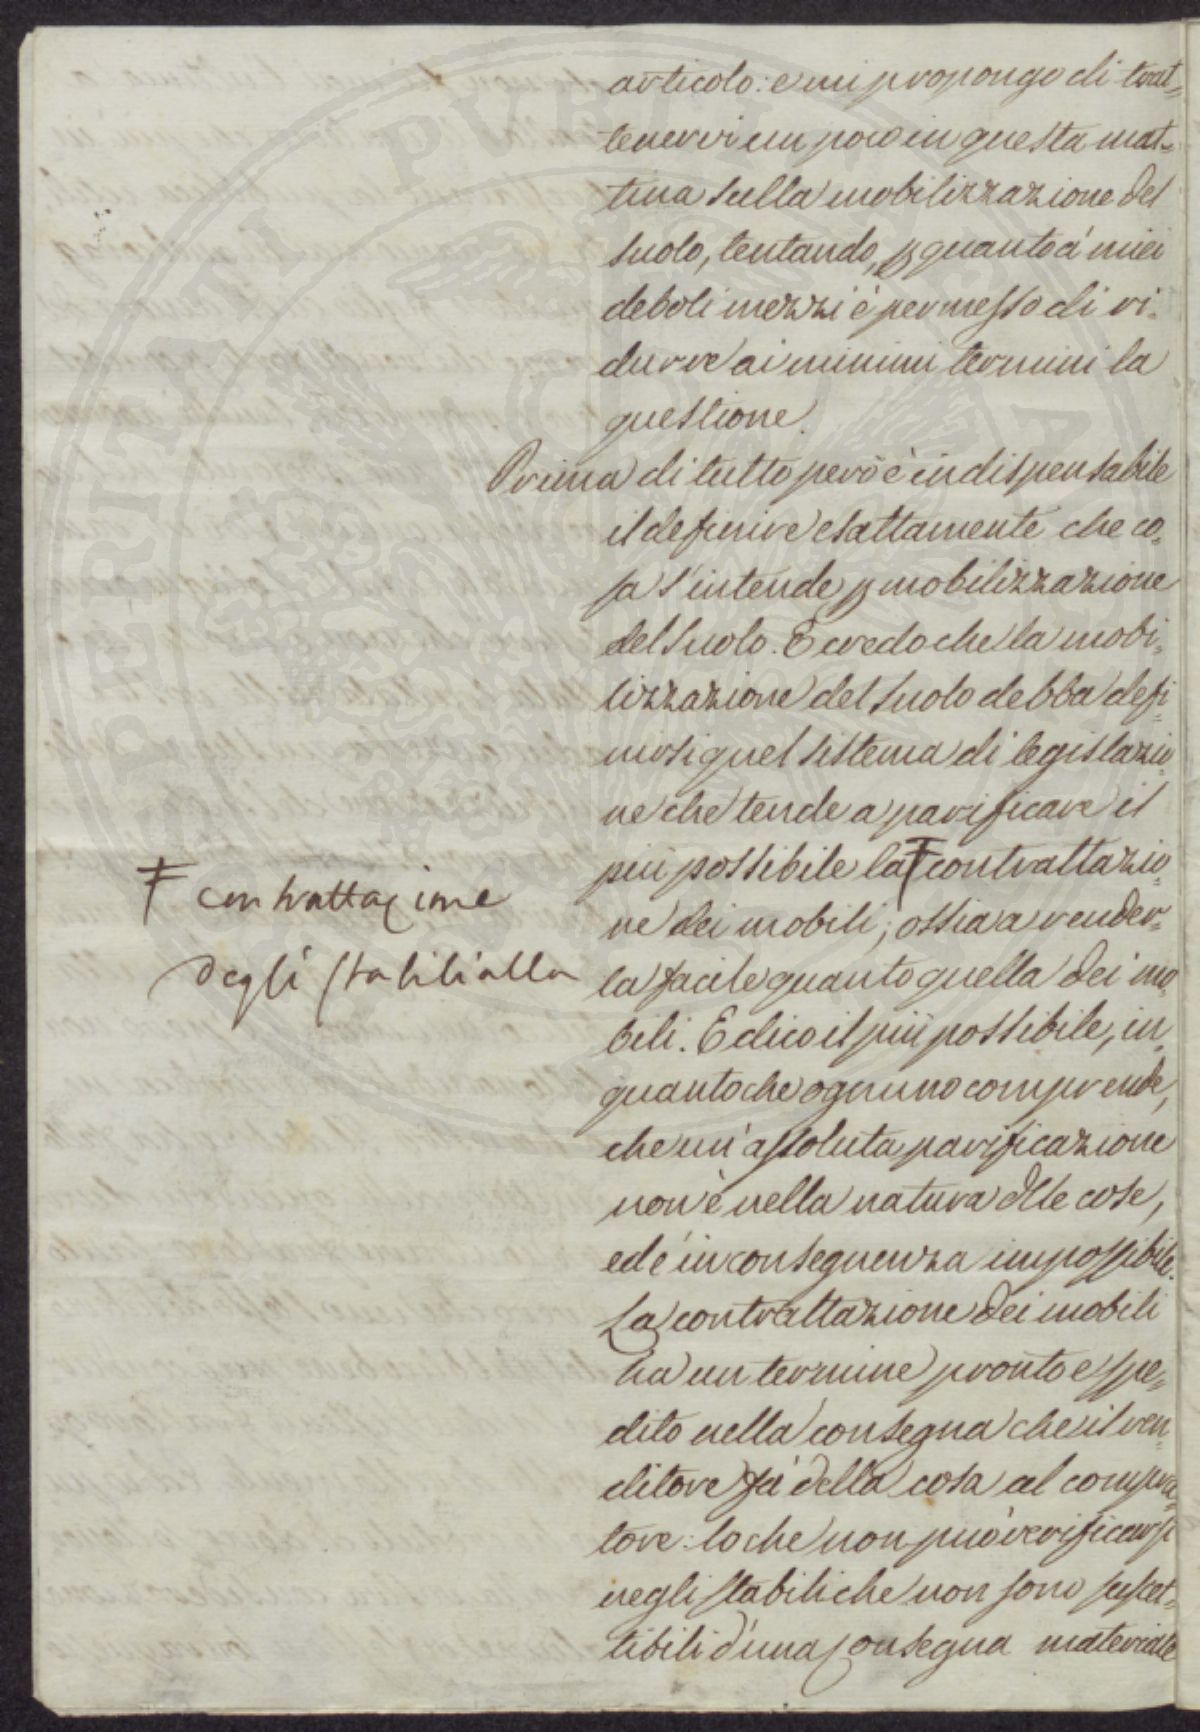 articolo: e mi propongo di trat=
tenervi un poco in questa mat=
tina sulla mobilizzazione del
suolo, tentando, p quanto a' miei
deboli mezzi è permesso di ri=
durre ai minimi termini la
questione.
Prima di tutto però è indispensabile
il definire esattamente che co=
sa s'intende p mobilizzazione
del suolo. E credo che la mobi=
lizzazione del suolo debba defi=
nirsi quel sistema di legislazio=
ne che tende a parificare il
più possibile la Ŧ contrattazio=
ne dei mobili; ossia a render=
la facile quanto quella dei mo=
bili. E dico il più possibile, in=
quantoche ognuno comprende,
che un'assoluta parificazione
non è nella natura dlle cose,
ed é in conseguenza impossibile.
La contrattazione dei mobili
ha un termine pronto e spe=
dito nella consegna che il ven=
ditore fà della cosa al compra=
tore: lo che non può verificarsi
negli stabili che non sono suscet=
tibili d'una consegna materiale
Ŧ contrattazione
degli stabili alla
PERITI PUBLI